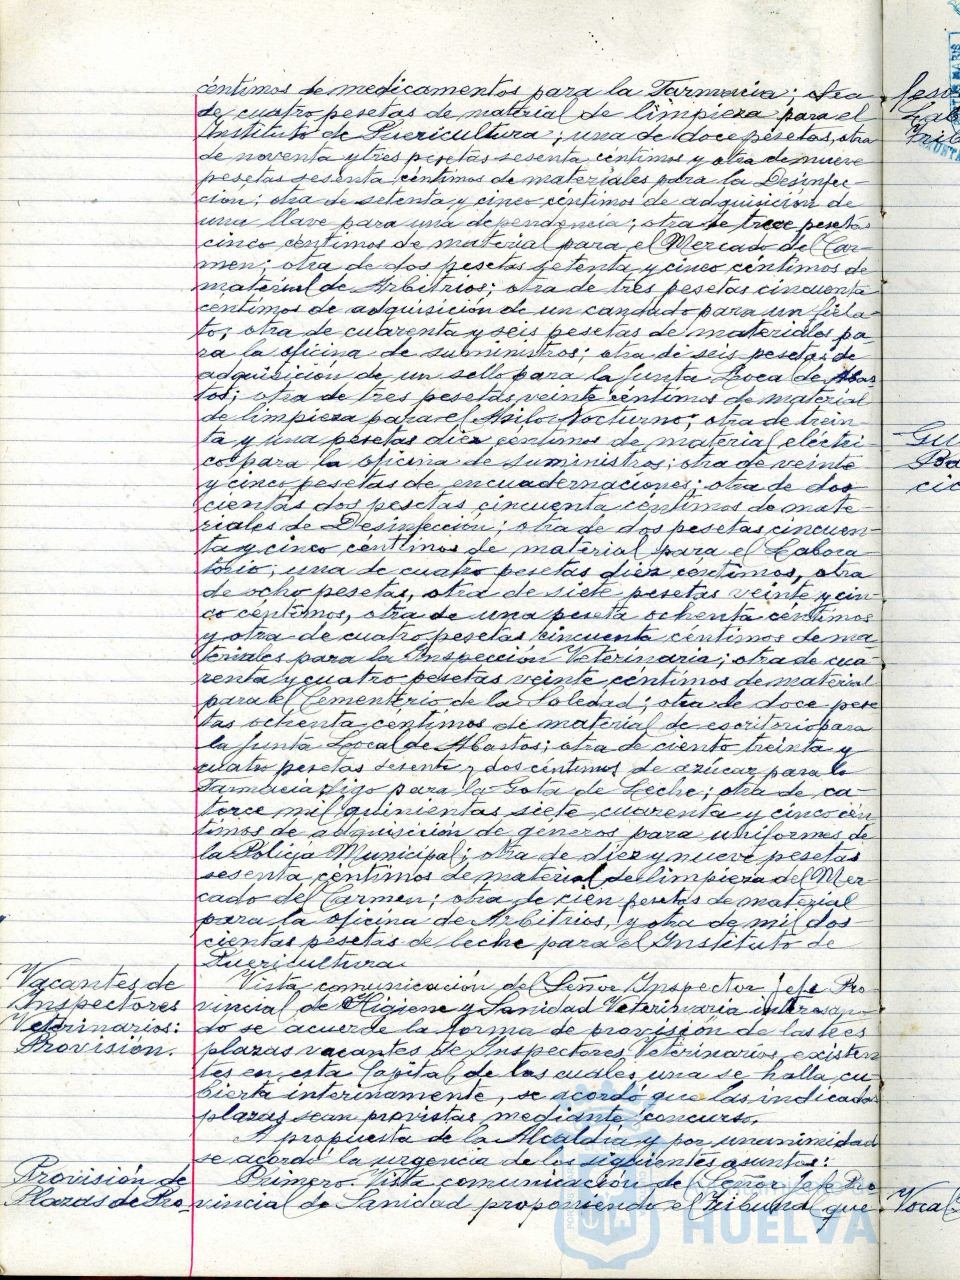 céntimos de medicamentos para la Farmacia; otra
de cuatro pesetas de material de limpieza para el
Instituto de Puericultura; una de doce pesetas, otra
de noventa y tres pesetas sesenta céntimos y otra de nueve
pesetas sesenta céntimos de materiales para la Desinfec-
ción; otra de setenta y cinco céntimos de adquisición de
una llave para una dependencia; otra de trece pesetas
cinco céntimos de material para el Mercado del Car-
men; otra de dos pesetas setenta y cinco céntimos de
material de Arbitrios; otra de tres pesetas cincuenta
céntimos de adquisición de un candado para un fiela-
to; otra de cuarenta y seis pesetas de materiales pa-
ra la oficina de suministros; otra de seis pesetas de
adquisición de un sello para la Junta Loca de Abas-
tos; otra de tres pesetas veinte céntimos de material
de limpieza para el Asilo Nocturno; otra de trein-
ta y una pesetas diez céntimos de material eléctri-
co para la oficina de suministros; otra de veinte
y cinco pesetas de encuadernaciones; otra de dos-
cientas dos pesetas cincuenta céntimos de mate-
riales de Desinfección; otra de dos pesetas cincuen-
ta y cinco céntimos de material para el Labora-
torio; una de cuatro pesetas diez céntimos, otra
de ocho pesetas, otra de siete pesetas veinte y cin-
co céntimos, otra de una peseta ochenta céntimos
y otra de cuatro pesetas cincuenta céntimos de ma-
teriales para la Inspección Veterinaria; otra de cua-
renta y cuatro pesetas veinte céntimos de material
para el Cementerio de la Soledad; otra de doce pese-
tas ochenta céntimos de material de escritorio para
la Junta Local de Abastos; otra de ciento treinta y
cuatro pesetas sesenta y dos céntimos de azúcar para la
Farmacia, digo para la Gota de Leche; otra de ca-
torce mil quinientas siete cuarenta y cinco cén-
timos de adquisición de géneros para uniformes de
la Policía Municipal; otra de diez y nueve pesetas
sesenta céntimos de material de limpieza del Mer-
cado del Carmen; otra de cien pesetas de material
para la oficina de Arbitrios, y otra de mil dos
cientas pesetas de leche para el Instituto de
Puericultura.
Vacantes de
Inspectores
Veterinarios:
Provisión.
Vista comunicación del Señor Inspector Jefe Pro-
vincial de Higiene y Sanidad Veterinaria interesan-
do se acuerde la forma de provisión de las tres
plazas vacantes de Inspectores Veterinarios existen-
tes en esta Capital, de las cuales una se halla cu-
bierta interinamente, se acordó que las indicadas
plazas sean provistas mediante concurso.
A propuesta de la Alcaldía y por unanimidad
se acordó la urgencia de los siguientes asuntos:
Provisión de
Plazas de Pro-
Primero. Vista comunicación de Señor Jefe Pro-
vincial de Sanidad proponiendo el Tribunal que
Ayuntamiento de
HUELVA